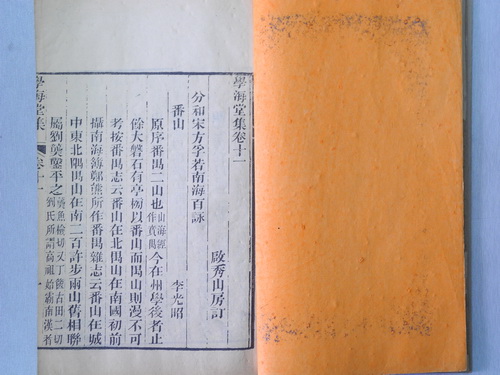 學海堂集卷十一
分和宋方孚若南海百詠
啟秀山房訂
番山
李光昭
原序番禺二山也山海經作賁禺今在州學後者止
餘大磐石有亭榜以番山而禺山則漫不可
考按番禺志云番山在北禺山在南國初前
攝南海簿鄭熊所作番禺雜志云番山在城
中東北隅禺山在南二百許步兩山舊相聯
屬劉龑鑿平之龑魚檢切又丁篋古田二切劉氏所謂高祖始霸南漢者
學海堂集
卷十一
一